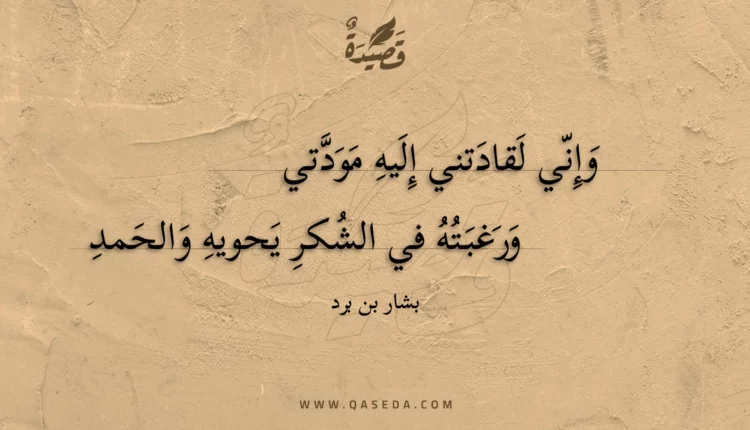 قَصِيْدَةٌ
وَإِنّي لَقادَتني إِلَيهِ مَوَدَّتي
وَرَغبَتُهُ في الشُكرِ يَحويهِ وَالحَمدِ
بشار بن برد
WWW.QASEDA.COM